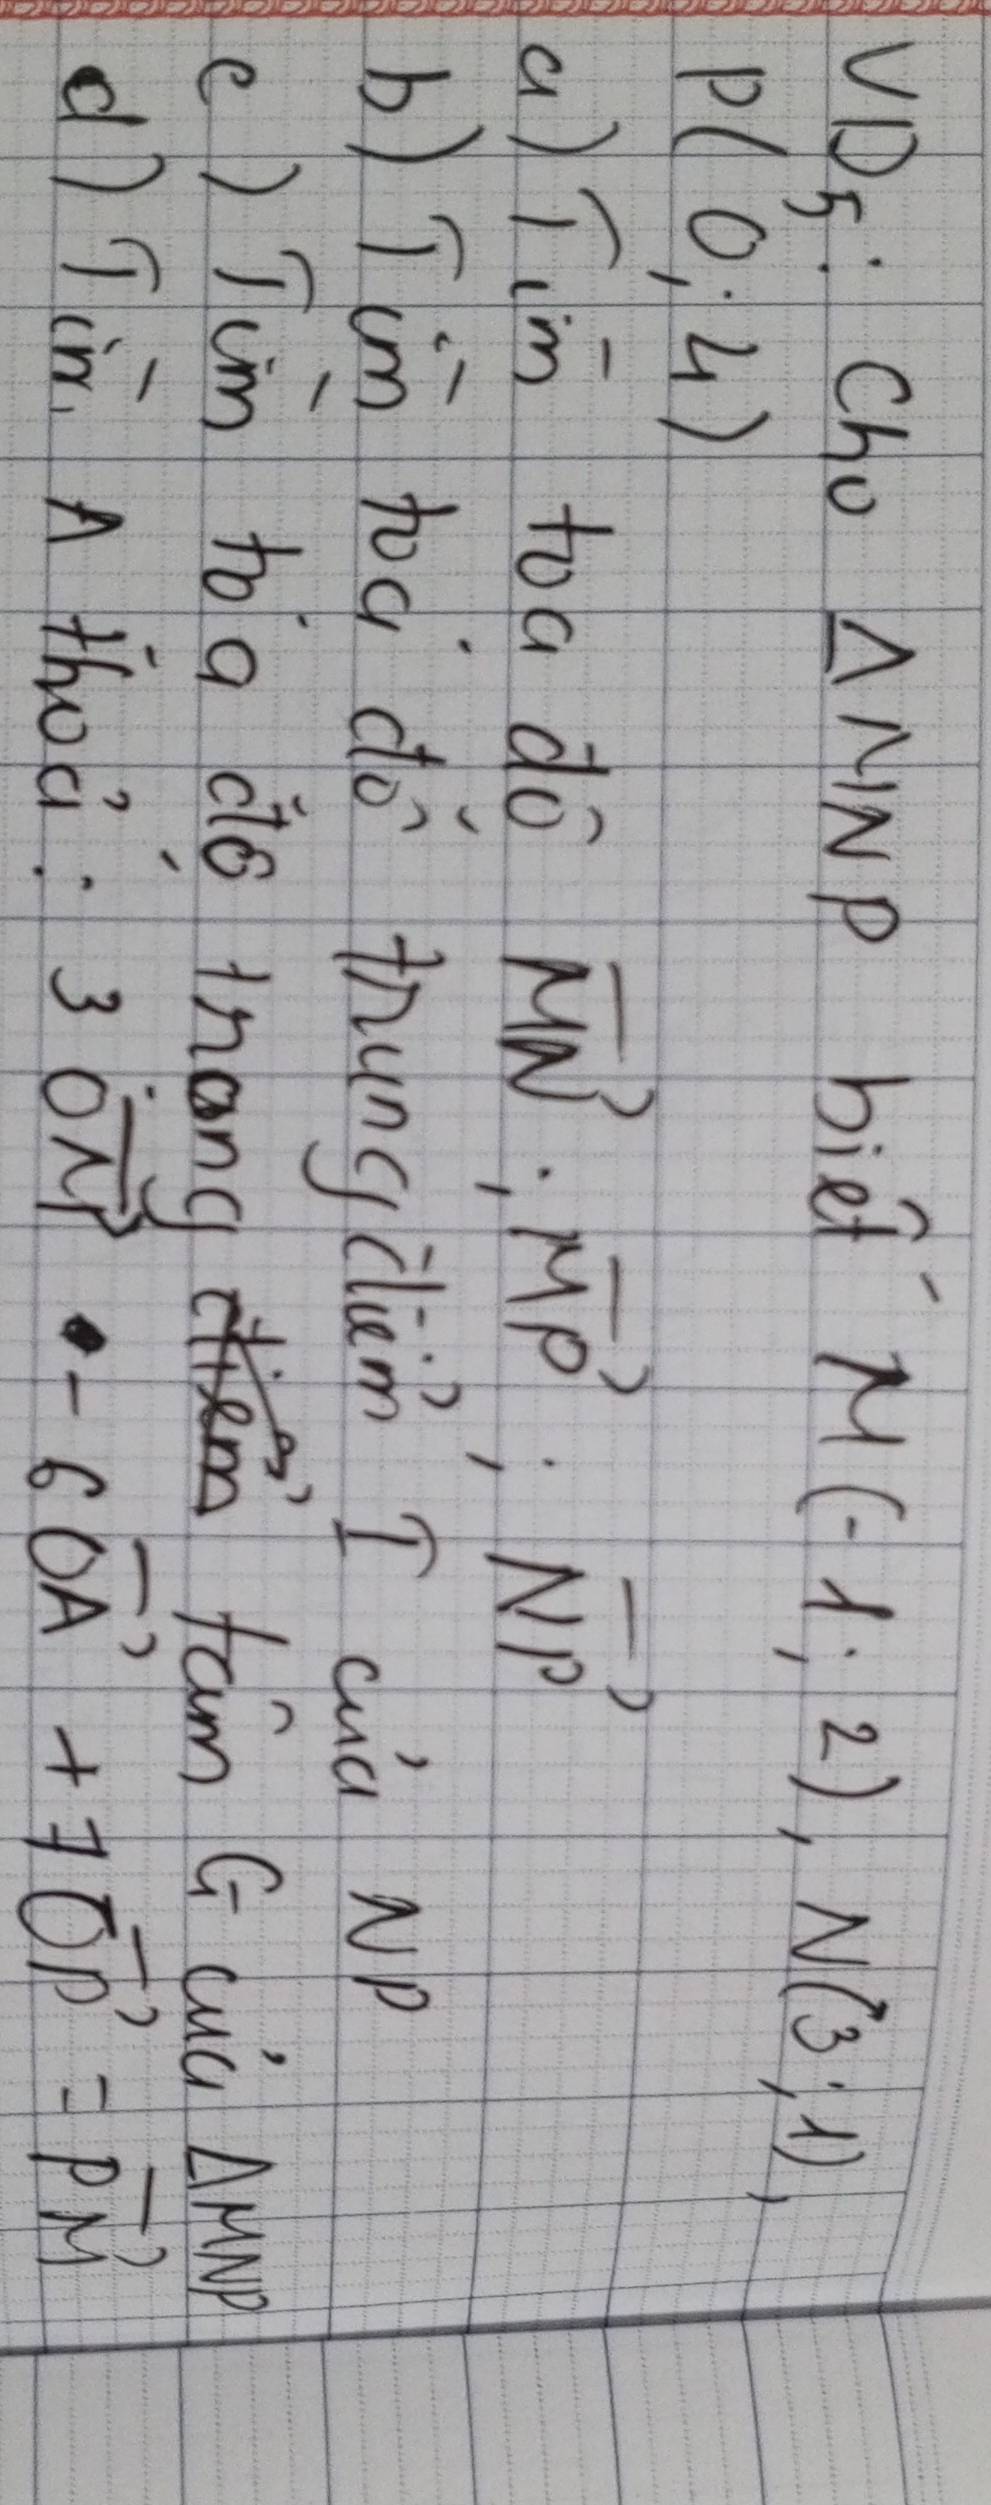 VD5: Cho ΔMNP biết M(-1; 2), N(3; 1),
P(0; 4)
a) Tìm toạ độ \overrightarrow{MN}; \overrightarrow{MP}; \overrightarrow{NP}
b) Tìm toạ độ trung điểm I của NP
c) Tìm toạ độ trọng tâm G của ΔMNP
d) Tìm A thoả: 3\overrightarrow{OM} - 6\overrightarrow{OA} + 7\overrightarrow{OP} = \overrightarrow{PM}